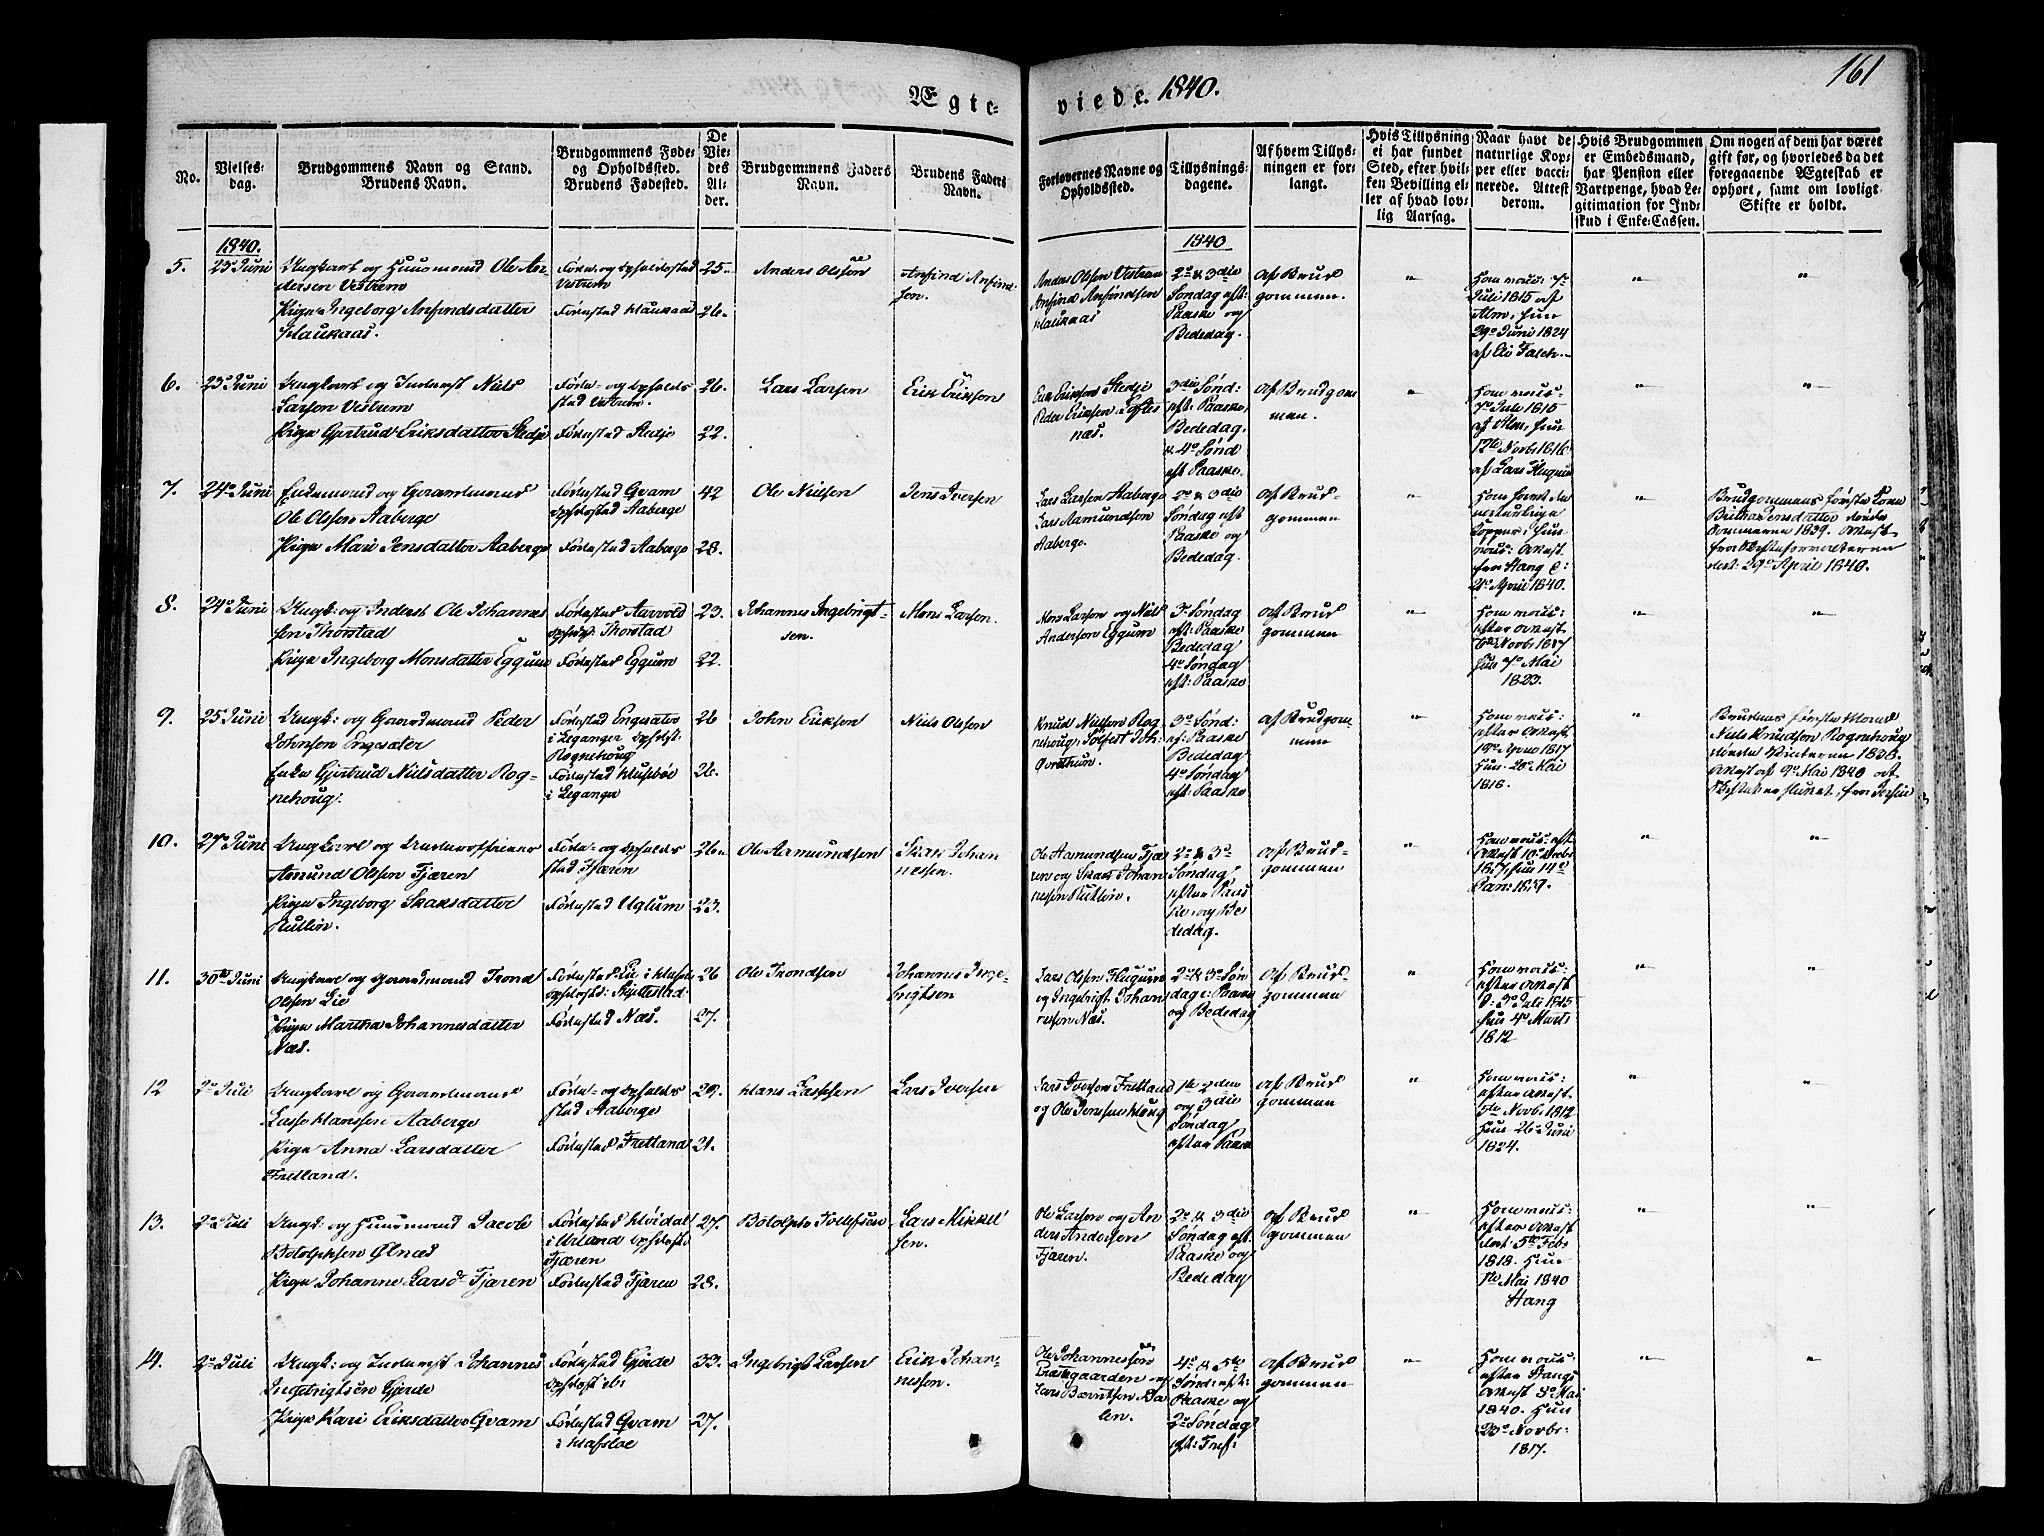 161
Ægte-
viede. 1840.
No.
Vielses-
dag.
Brudgommens Navn og Stand.
Brudens Navn.
Brudgommens Føde-
og Opholdssted.
Brudens Fødested.
De
Vie-
des
Al-
der.
Brudgommens Faders
Navn.
Brudens Faders
Navn.
Forlovernes Navne og
Opholdssted.
Tillysnings-
dagene.
Af hvem Tillys-
ningen er for-
langt.
Hvis Tillysning
ei har fundet
Sted, efter hvil-
ken Bevilling el-
ler af hvad lov-
lig Aarsag.
Naar havt de
naturlige Kop-
per eller vacci-
nerede. Attest
derom.
Hvis Brudgommen
er Embedsmand,
har Pension eller
Vartpenge, hvad Le-
gitimation for Ind-
skud i Enke-Cassen.
Om nogen af dem har været
gift før, og hvorledes da det
foregaaende Ægteskab er
ophørt, samt om lovligt
Skifte er holdt.
1840.
1840
5.
23de Juni
Ungkarl og Huusmand Ole An-
dersen Vestrem
Pige Ingeborg Anfindsdatter
Haukaas.
Føde- og Opholdssted
Vestrem
Fødested Haukaas
25.
26.
Anders Olsen
Anfind Anfind-
sen.
Anders Olsen Vestrem
Anfind Anfindsen
Haukaas
2de & 3die
Søndag eft:
Paaske og
Bededag.
af Brud
gommen.
Juli 1815 af
Alm, hun
29de Juni 1824
af Falch.
6.
23de Juni
Ungkarl og Inderst Niels
Larsen Vestrem
Pige Gjertrud Eriksdatter Stedje
Føde- og Opholds
sted Vestrem.
Fødested Stedje
26.
22.
Lars Larsen
Erik Erikson
Erik Eriksen Stedje
Peder Eriksen Loftes
næs.
3die Sønd:
eft: Paaske,
Bededag,
& 4de Sønd
eft Paaske.
af Brudgom
men.
7de Juli 1815
af Alm, hun
Novb: 1816
af Lars Flugum
7.
24de Juni
Enkemand og Gaardmand
Ole Olsen Aaberge
Pige Mari Jensdatter Aaberge
Fødested Qvam
Opholdssted Aaberge
Fødested Aaberge
42
28.
Ole Nielsen
Jens Iversen
Lars Larsen Aaberge
Lars Aamundsen
Aaberge.
2de & 3die
Søndag eft
Paaske og
Bededag.
af Brud-
gommen
naturlige
Kopper, hun
vacc: Attest
fra Stang
April 1840.
Brudgommens første Kone
Britha Jensdatter døde
Sommeren 1839. Attest
fra Skifteforvalteren
dat: 29de April 1840.
8.
24de Juni
Ungk: og Inderst Ole Johannes
sen Thorstad
Pige Ingeborg Monsdatter Eggum
Fødested Aarvold
Opholds: Thorstad
Fødested Eggum
23.
22.
Johannes Ingebrigt-
sen.
Mons Larsen.
Mons Larsen og Niels
Andersen Eggum
3de Søndag
eft: Paaske
Bededag
4de Søndag
eft: Paaske
af Brud
gommen
Ham vacc:
efter Attest
6te Novb: 1817
hun 7de Mai
1823.
9.
25 Juni
Ungk: og Gaardmand Peder
Johnsen Engesæter
Enke Gjertrud Nielsdatter Rog-
nehoug.
Fødested Engesæter
i Leganger Opholdst:
Rognehoug
Fødested Husebøe
i Leganger
26
26.
John Erikson
Niels Olsen
Knud Nielsen Rog-
nehoug, Sølfest Joh:
Qvæthum.
3de Sønd:
ef: Paaske
Bededag
4de Søndag
eft: Paaske
af Brudgom
men
Ham vacc:
efter Attest
1817
hun 20de Mai
1816.
Brudens første Mand
Niels Knudsen Rognehoug
døde Vinteren 1838.
Attest af 9de Mai 1840 at
10.
27de Juni
Ungkarl og Underofficier
Amund Olsen Fjæren
Pige Ingeborg Skaksdatter
Rutlin.
Føde- og Opholds
sted Fjæren
Fødested Uglum
26.
23.
Ole Aamundsen
Skak Johan
nessen.
Ole Aamundsen Fjæ
ren og Skak Johan
nessen Rutlin.
2de & 3de
Søndag
efter Paas
ke, og Be
dedag.
af Brud-
gommen
Ham vacc: eft
Attest
1817, hun 14de
Jan: 1819.
11.
30te Juni
Ungkarl og Gaardmand Trond
Olsen Lie
Pige Martha Johannesdatter
Næs.
Fødested Lie i Hafslo
Opholdsst: Skjeldestad
Fødested Næs.
26
27.
Ole Trondsen
Johannes Inge-
brigtsen
Lars Olsen Flugum
og Ingebrigt Johan
nessen Næs.
2de & 3de Søn
dag e: Paaske
og Bededag
af Brud-
gommen
Ham vacc:
efter Attest
3de Juli 1815
hun 4de Marts
1812
12
2de Juli
Ungkarl og Gaardmand
Lasse Hanssen Aaberge
Pige Anna Larsdatter
Fretland.
Føde- og Opholds
sted Aaberge
Fødested Fretland
29.
21.
Hans Lassesen
Lars Iversen
Lars Iversen Fretland
og Ole Jensen Houg
1ste 2den
og 3die
Søndag
efter Paaske
af Brud
gommen
Ham vacc:
efter Attest
5te Novb: 1812
hun 26de Juni
1824.
13.
2de Juli
Ungk: og Huusmand Jacob
Botolphsen Ølnæs
Pige Johanne Larsd: Fjæren
Fødested Høidal
i Urland Opholdsst:
Fjæren
Fødested Fjæren
27.
28.
Botolph Tollefsen
Lars Mikkel
sen.
Ole Larsen og An
ders Andersen
Fjæren.
2de & 3die
Søndag eft.
Paaske og
Bededag
af Brud
gommen
Ham vacc:
efter Attest
dat: 5te Feb:
1818. Hun
1ste Mai 1840
Stang
14.
2de Juli
Ungk: og Inderst Johannes
Ingebrigtsen Gjerde
Pige Kari Eriksdatter Qvam
Fødested Gjerde
Opholdsst ib:
Fødested Qvam
i Hafsloe
33.
27.
Ingebrigt Larsen
Erik Johan-
nessen.
Ole Johannessen
Præstegaarden og
Lars Berntsen Da
len.
4de & 5te
Sønd: eft:
Paaske og
2de Søndag
eft: Tref:
af Brud
gommen
Ham vacc:
efter Stangs
Attest 8de Mai
1840. Hun
23de Novb:
1817.